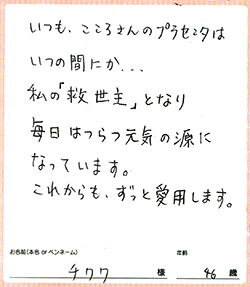 いつも、こころさんのプラセンタは
いつの間にか...
私の「救世主」となり
毎日はつらつ元気の源に
なっています。
これからも、ずっと愛用します。
お名前(本名 or ペンネーム) 年齢
チワワ 様 46 歳